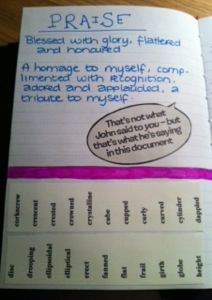 PRAISE
Blessed with glory, flattered
and honoured
A homage to myself, comp-
limented with recognition,
adored and applauded, a
tribute to myself.
That's not what
John said to you – but
that's what he's saying
in this document
corkscrew
crescent
crested
crowned
crystalline
cube
cupped
curly
curved
cylinder
dappled
disc
drooping
ellipsoidal
elliptical
erect
fanned
flat
frail
girth
globe
height